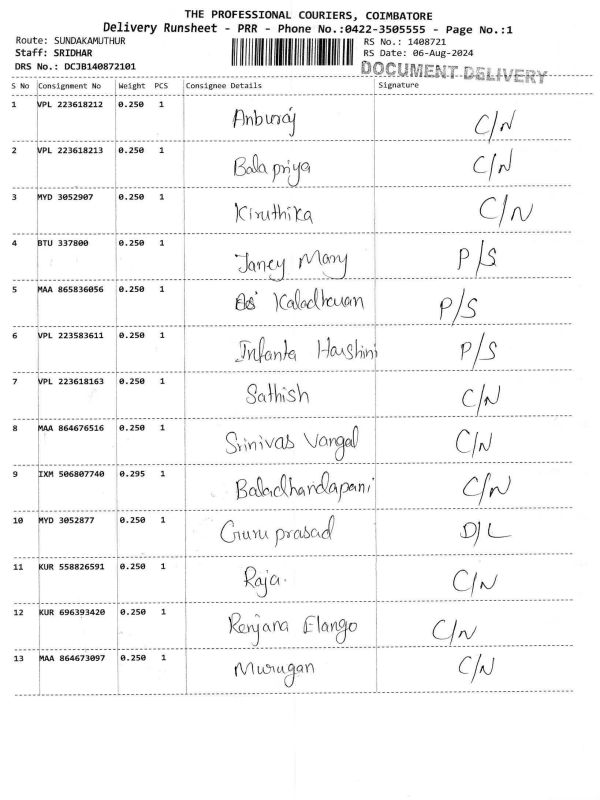 THE PROFESSIONAL COURIERS, COIMBATORE
Delivery Runsheet - PRR - Phone No.:0422-3505555 - Page No.:1
Route: SUNDAKAMUTHUR RS No.: 1408721
Staff: SRIDHAR RS Date: 06-Aug-2024
DRS No.: DCJB140872101 DOCUMENT DELIVERY
S No Consignment No Weight PCS Consignee Details Signature
1 VPL 223618212 0.250 1 Anburaj C/N
2 VPL 223618213 0.250 1 Bala priya C/N
3 MYD 3052907 0.250 1 Kiruthika C/N
4 BTU 337800 0.250 1 Janey Mary P/S
5 MAA 865836056 0.250 1 Kaladharan P/S
6 VPL 223583611 0.250 1 Infanta Harshini P/S
7 VPL 223618163 0.250 1 Sathish C/N
8 MAA 864676516 0.250 1 Srinivas Vangal C/N
9 IXM 506807740 0.295 1 Baladhandapani C/N
10 MYD 3052877 0.250 1 Guru prasad D/L
11 KUR 558826591 0.250 1 Raja. C/N
12 KUR 696393420 0.250 1 Renjana Elango C/N
13 MAA 864673097 0.250 1 Murugan C/N